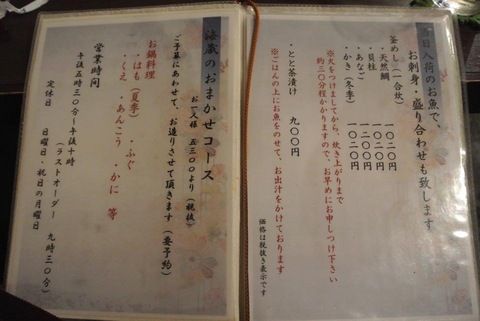 当日入荷のお魚で、
お刺身・盛り合わせも致します
釜めし(一合炊)
・天然鯛 一〇二〇円
・貝柱 一〇二〇円
・あなご 一〇二〇円
・かき(冬季) 一〇二〇円
※火をつけましてから、炊き上がりまで
約三〇分程かかりますので、お早めにお申しつけ下さい
・とと茶漬け 九〇〇円
※ごはんの上にお魚をのせて、お出汁をかけております
価格は税抜き表示です
海蔵のおまかせコース
お一人様 五三〇〇より(税抜)
ご予算にあわせて、お造りさせて頂きます(要予約)
お鍋料理
・はも(夏季) ・ふぐ
・くえ ・あんこう ・かに 等
営業時間
午後五時三〇分〜午後十時
(ラストオーダー 九時三〇分)
定休日 日曜日・祝日の月曜日